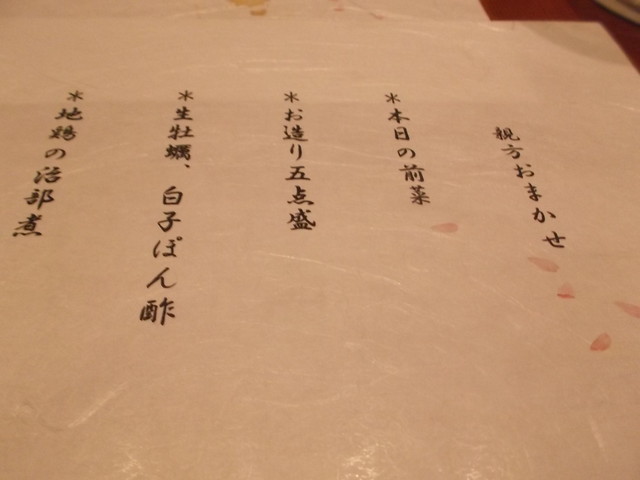 親方おまかせ
＊本日の前菜
＊お造り五点盛
＊生牡蠣、白子ぽん酢
＊地鶏の治部煮